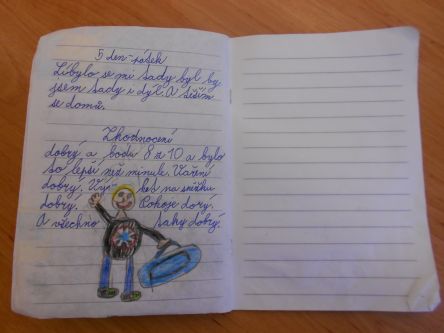 5 den-pátek
Líbylo se mi sady byl by
jsem sady i dýl. A těším
se domů.
Zhodnocení
dobrý a bodu 8 z 10 a bylo
to lepší než minule. Vaření
dobrý. na sněžku
dobrý. Pokoje dorý.
A všechno taky dobrý.